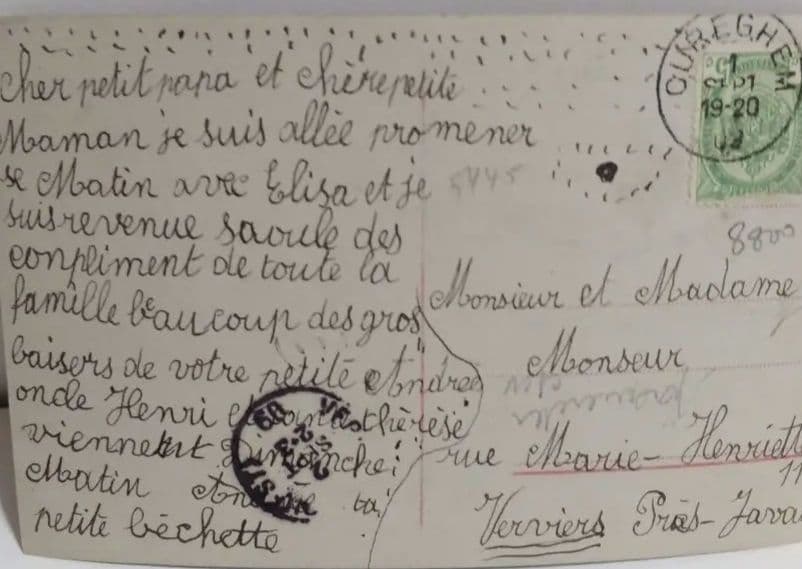 Cher petit papa et chère petite
Maman je suis allée promener
se Matin avec Eliza et je
suis revenue saoule des
conpliment de toute la
famille beaucoup des gros
baisers de votre petite Andrée
oncle Henri et thérèse
viennent Dimanche
Matin ta
petite béchette
CUREGHEM
1
19-20
5445
8800
Monsieur et Madame
Monseur
rue Marie-Henriette
11
Verviers Près-Java